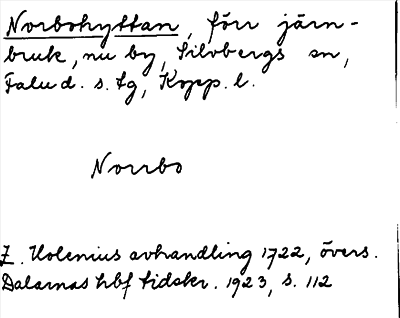 Norbohyttan, förr järn-
bruk, nu by, Silvbergs sn,
Falu d. s. tg, Kopp. l.
Norrbo
Z. Holenius avhandling 1722, övers.
Dalarnas hbf tidskr. 1923, s. 112